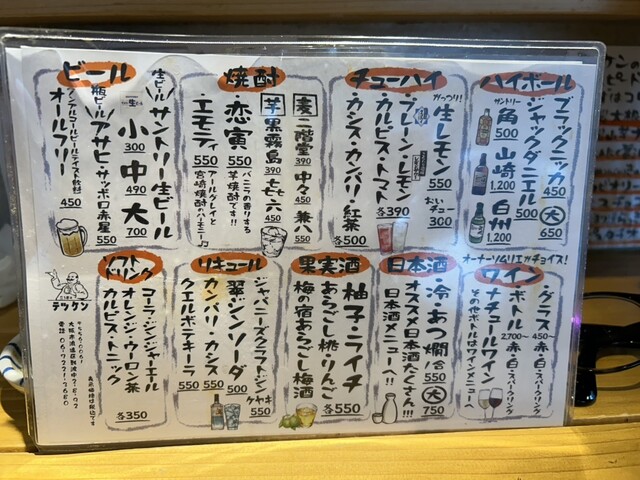 ビール
生ビール
サントリー生ビール
小 300
中 490
大 700
瓶ビール
アサヒ・サッポロ赤星 550
ノンアルコールビールテイスト飲料
オールフリー 450
焼酎
麦 二階堂 390 中々 450 兼八 550
芋 黒霧島 390 㐂六 450
恋寅 550
バニラの香りする
芋焼酎です!!
・エモティ 550
アールグレイと
宮崎焼酎のハーモニー♪
チューハイ
がっつり!
生レモン 550
おいチュー 300
・プレーン・レモン
・カルピス・トマト 各390
カシス・カンパリ・紅茶 各500
ハイボール
ブラックニッカ 450 大 650
ジャックダニエル 500
サントリー
角 500
山崎 1,200
白州 1,200
オーナーソムリエッチョイス!
ワイン
・グラス 450〜 赤・白・スパークリング
・ボトル 2,700〜 赤・白・スパークリング
ナチュールワイン
その他ボトルはワインメニューへ
日本酒
冷・あつ燗 1合 550 大 750
オススメ日本酒たくさん!!!
日本酒メニューへ!!
果実酒
柚子・ライチ
あらごし桃・りんご
梅の宿あらごし梅酒
各550
リキュール
ジャパニーズクラフトジン
ケヤキ 550
翠・ジンソーダ 500
カンパリ・カシス 550
クエルボテキーラ 550
ソフトドリンク
コーラ・ジンジャーエール
オレンジ・ウーロン茶
カルピス・トニック
各350
テツケン
大阪市浪速区難波中2-6-22
電話 06-7221-3680
表示価格は税込です